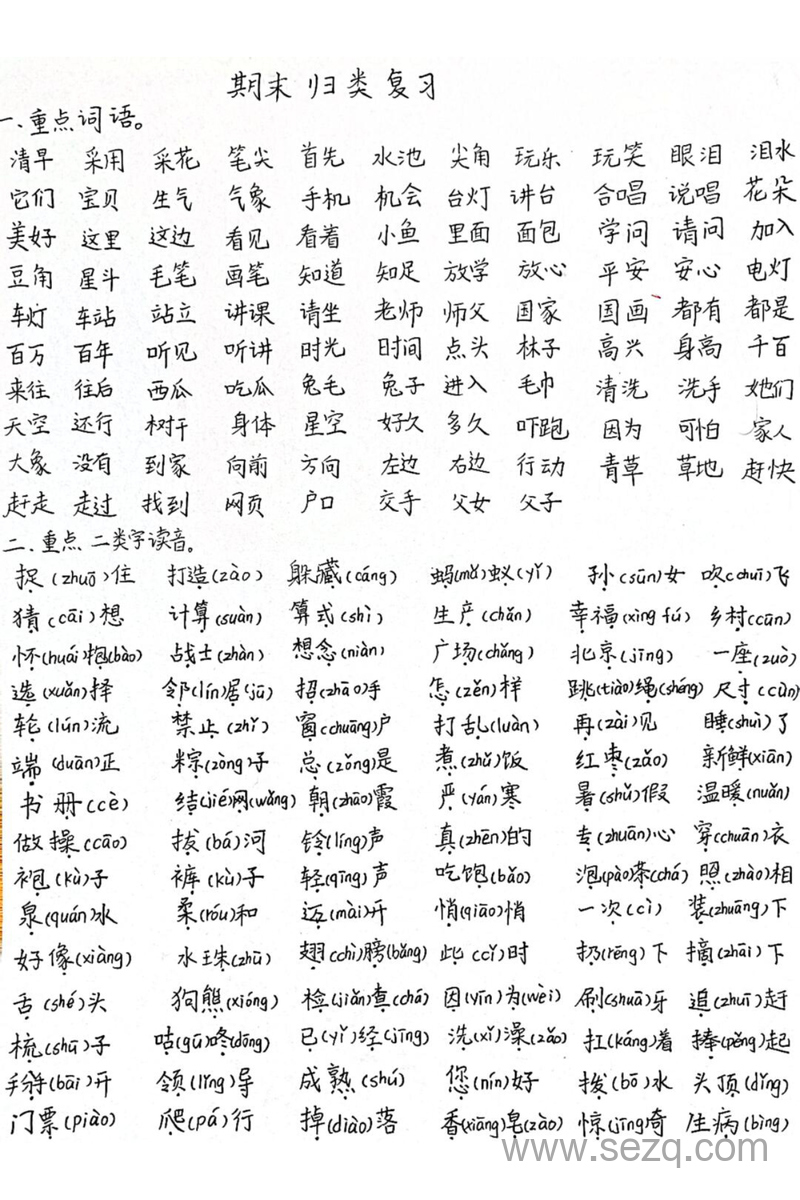 期末归类复习
一、重点词语。
清早 采用 采花 笔尖 首先 水池 尖角 玩乐 玩笑 眼泪 泪水
它们 宝贝 生气 气象 手机 机会 台灯 讲台 合唱 说唱 花朵
美好 这里 这边 看见 看着 小鱼 里面 面包 学问 请问 加入
豆角 星斗 毛笔 画笔 知道 知足 放学 放心 平安 安心 电灯
车灯 车站 站立 讲课 请坐 老师 师父 国家 国画 都有 都是
百万 百年 听见 听讲 时光 时间 点头 林子 高兴 身高 千百
来往 往后 西瓜 吃瓜 兔毛 兔子 进入 毛巾 清洗 洗手 她们
天空 还行 树干 身体 星空 好久 多久 吓跑 因为 可怕 家人
大象 没有 到家 向前 方向 左边 右边 行动 青草 草地 赶快
赶走 走过 找到 网页 户口 交手 父女 父子
二、重点二类字读音。
捉(zhuō)住 打造(zào) 躲藏(cáng) 蚂(mǎ)蚁(yǐ) 孙(sūn)女 吹(chuī)飞
猜(cāi)想 计算(suàn) 算式(shì) 生产(chǎn) 幸福(xìng fú) 乡村(cūn)
怀(huái)抱(bào) 战士(zhàn) 想念(niàn) 广场(chǎng) 北京(jīng) 一座(zuò)
选(xuǎn)择 邻(lín)居(jū) 招(zhāo)手 怎(zěn)样 跳(tiào)绳(shéng) 尺寸(cùn)
轮(lún)流 禁止(zhǐ) 窗(chuāng)户 打乱(luàn) 再(zài)见 睡(shuì)了
端(duān)正 粽(zòng)子 总(zǒng)是 煮(zhǔ)饭 红枣(zǎo) 新鲜(xiān)
书册(cè) 结(jié)网(wǎng) 朝(zhāo)霞 严(yán)寒 暑(shǔ)假 温暖(nuǎn)
做操(cāo) 拔(bá)河 铃(líng)声 真(zhēn)的 专(zhuān)心 穿(chuān)衣
袍(kù)子 裤(kù)子 轻(qīng)声 吃饱(bǎo) 泡(pào)茶(chá) 照(zhào)相
泉(quán)水 柔(róu)和 迈(mài)开 悄(qiāo)悄 一次(cì) 装(zhuāng)下
好像(xiàng) 水珠(zhū) 翅(chì)膀(bǎng) 此(cǐ)时 扔(rēng)下 摘(zhāi)下
舌(shé)头 狗熊(xióng) 检(jiǎn)查(chá) 因(yīn)为(wèi) 刷(shuā)牙 追(zhuī)赶
梳(shū)子 咕(gū)咚(dōng) 已(yǐ)经(jīng) 洗(xǐ)澡(zǎo) 扛(káng)着 捧(pěng)起
掰(bāi)开 领(lǐng)导 成熟(shú) 您(nín)好 拨(bō)水 头顶(dǐng)
门票(piào) 爬(pá)行 掉(diào)落 香(xiāng)皂(zào) 惊(jīng)奇 生病(bìng)
www.sezq.com